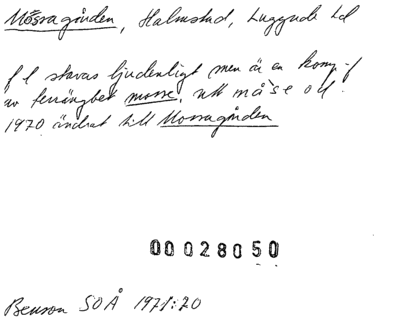 Mossagården, Halmstad, Luggude hd
f l stavas ljudenligt men är en komp. f
av terrängbet mosse, utt må`se o d.
1970 ändrat till Mossagården
00028050
Benson SOÅ 1971:20